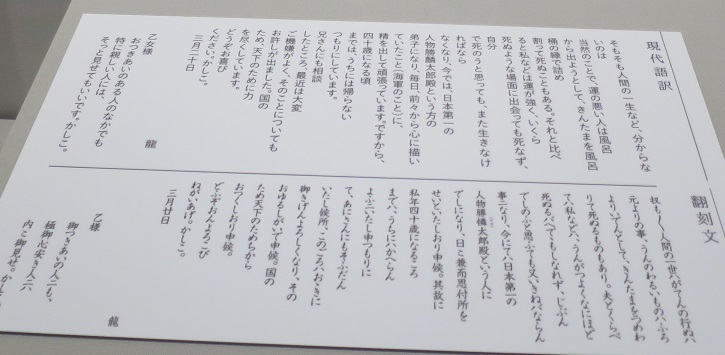 現代語訳
そもそも人間の一生など、分からな
いのは
当然のことで、運の悪い人は風呂
から出ようとして、きんたまを風呂
桶の縁で詰め
割って死ぬこともある。それと比べ
ると私などは運が強く、いくら
死ぬような場面に出会っても死なず、
自分
で死のうと思っても、また生きなけ
ればなら
なくなり、今では、日本第一の
人物勝麟太郎殿という方の
弟子になり、毎日、前々から心に描い
ていたこと(海軍のこと)に、
精を出して頑張っています。ですから、
四十歳になる頃
までは、うちには帰らない
つもりにしています。
兄さんにも相談
したところ、最近は大変
ご機嫌がよく、そのことについても
お許しが出ました。国の
ため、天下のために力
を尽くしています。
どうぞお喜び
ください。かしこ。
三月二十日
龍
乙女様
おつきあいのある人のなかでも
特に親しい人には、
そっと見せてもいいです。かしこ。
翻刻文
扨も〳〵人間の一世ハがてんの行ぬハ
元よりの事、うんのわるいものハふろ
よりいでんとして、きんたまをつめわ
りて死ぬるものもあり。夫とくらべ
てハ私などハ、うんがつよくなにほど
死ぬるバへでてもしなれず、じぶん
でしのふと思ふても又いきねバならん
事ニなり、今にてハ日本第一の
人物勝憐太郎殿という人に
でしになり、日々兼而思付所を
せいといたしおり申候。其故に
私年四十歳になるころ
まで、うちにハかへらん
よふニいたし申つもりに
て、あにさんにもそふだん
いたし候所、このごろハおゝきに
御きげんよろしくなり、その
おゆるしがいで申候。国の
ため天下のためちから
おつくしおり申候。
どふぞおんよろこび
ねがいあげ、かしこ。
三月廿日
龍
乙様
御つきあいの人ニも、
極御心安き人ニハ
内〻御見せ、かしこ